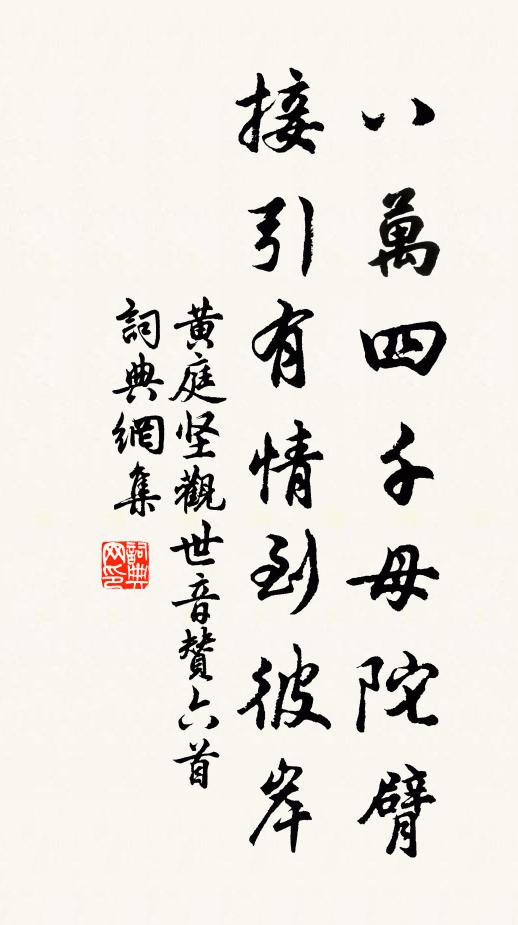 八萬四千母陀臂
接引有情到彼岸
黄庭坚觀世音贊六首
詞典網集
詞典网印